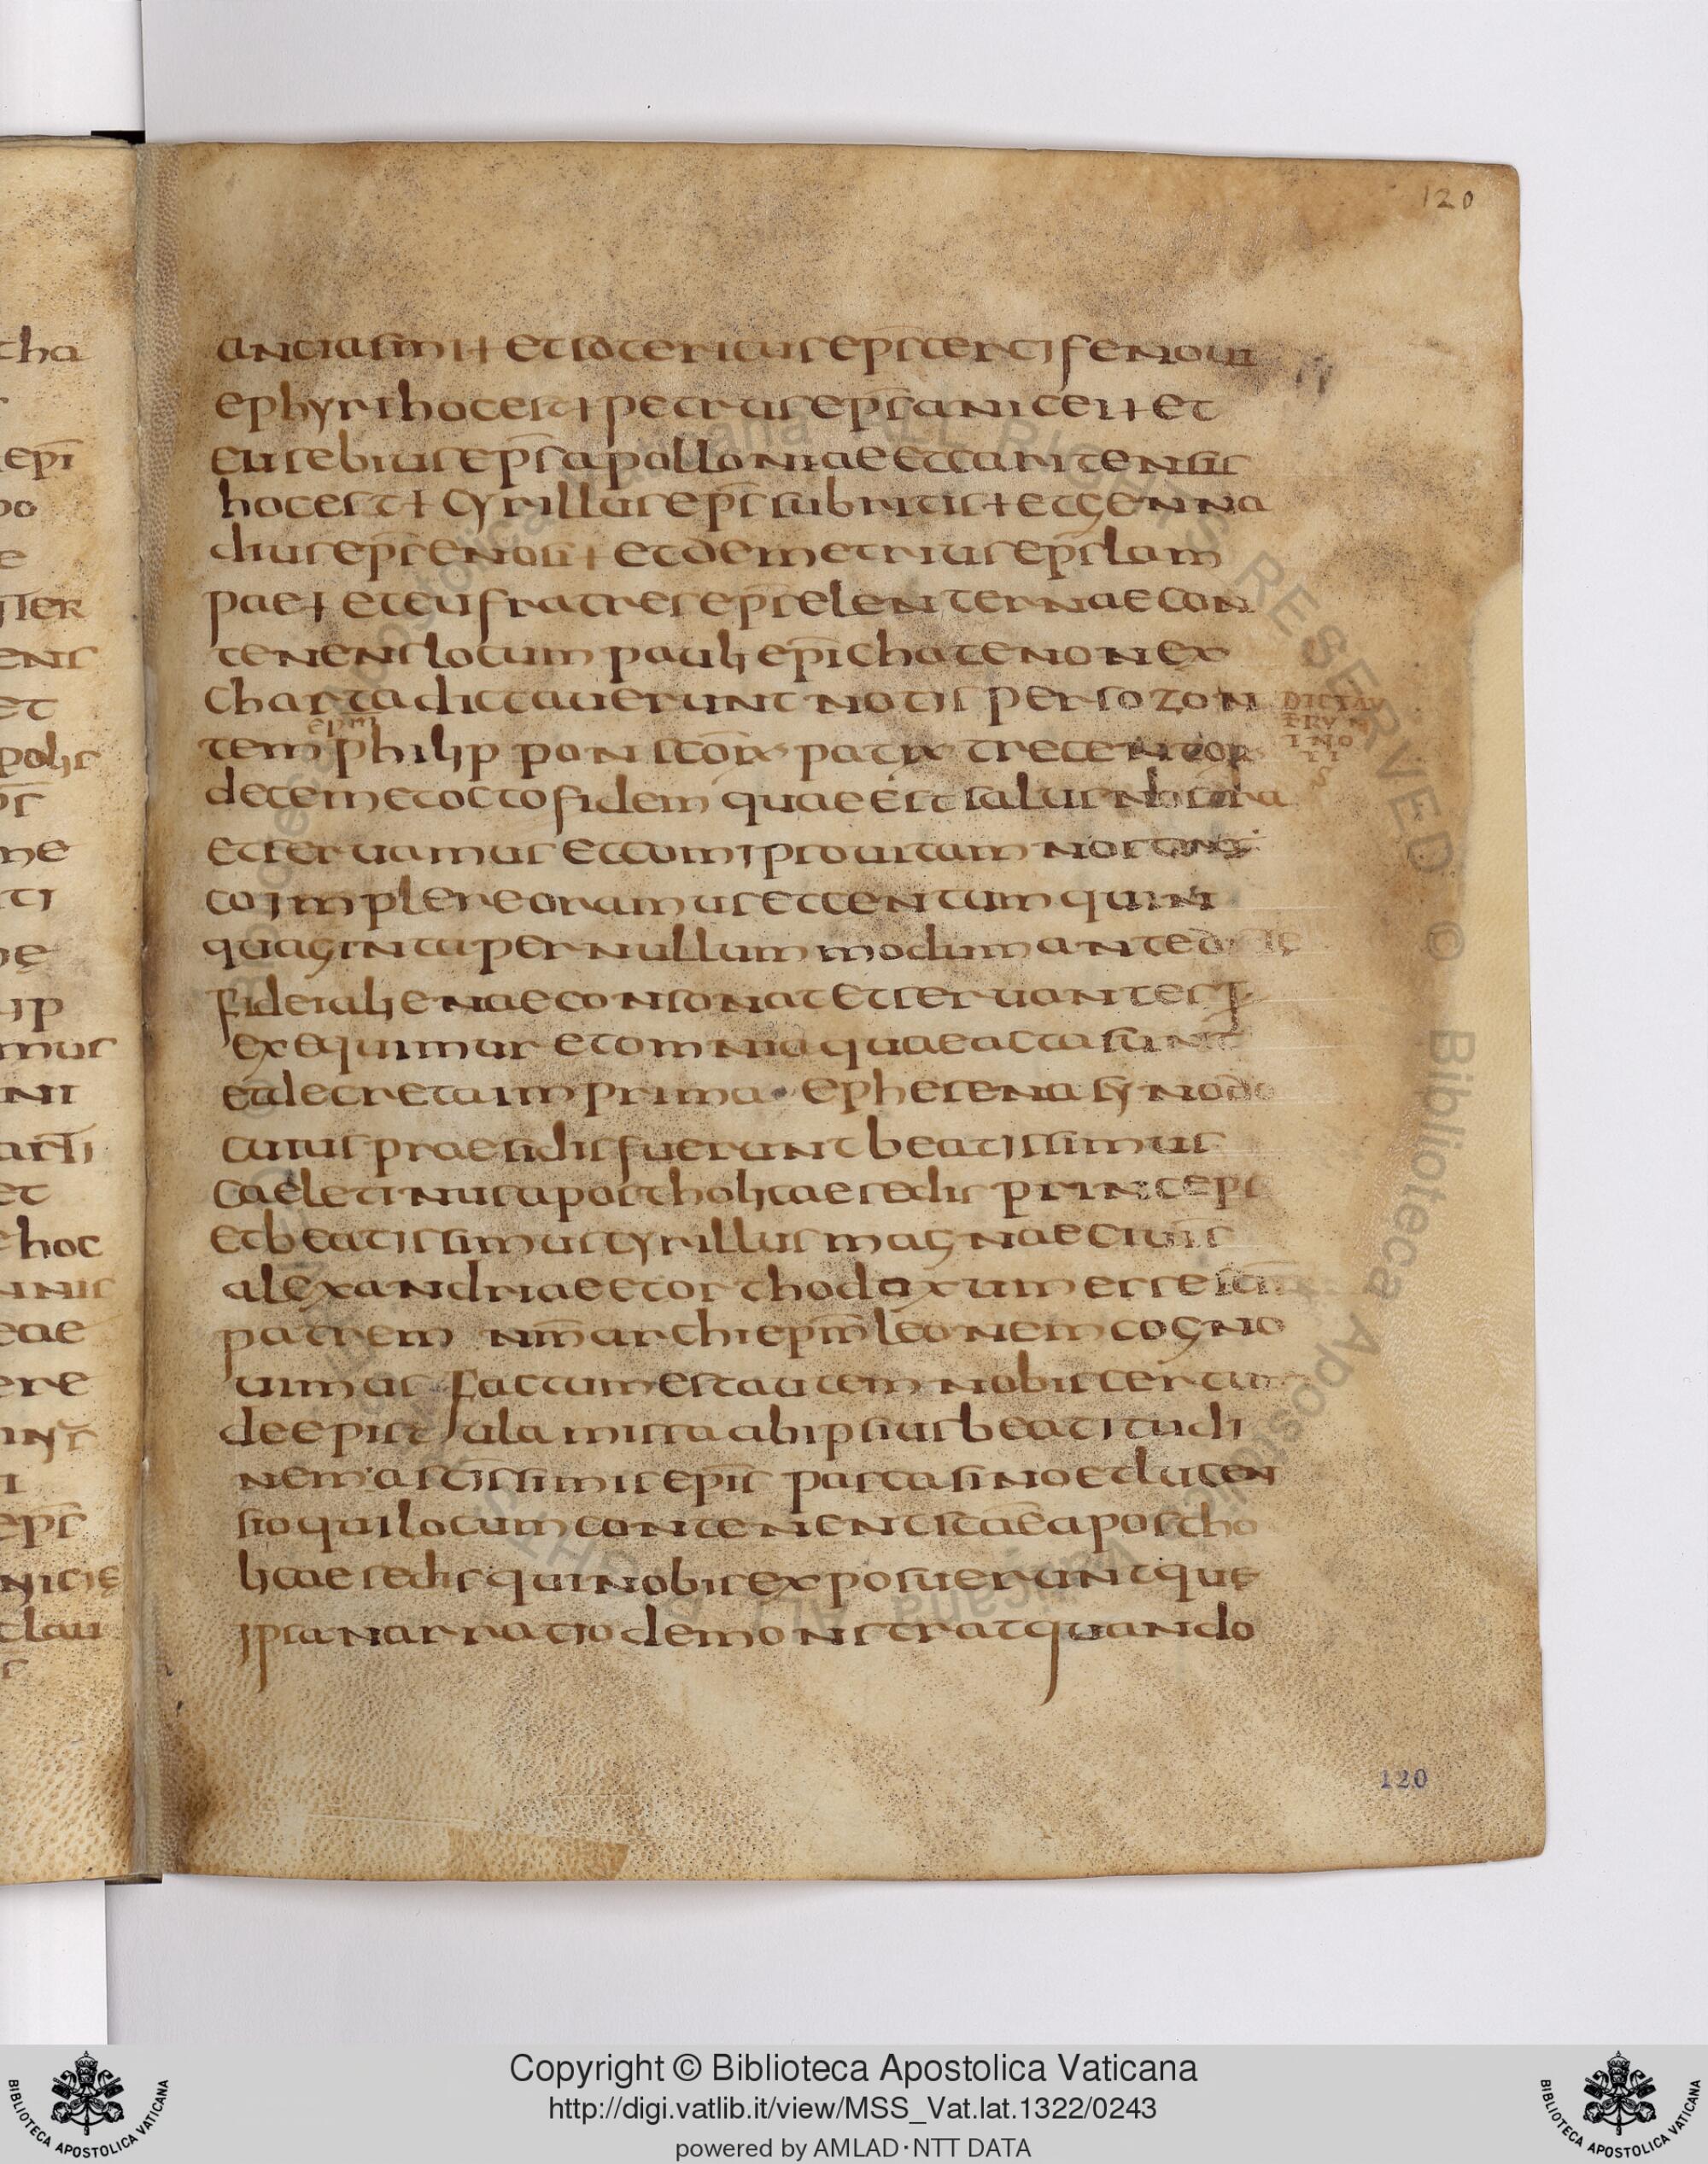 120
anciasmi + et sotericus ep̄s certi s enoui
ephyri hoc est + petrus ep̄s anicei + et
eusebius ep̄s apolloniae et taritensis
hoc est + cyrillus ep̄s subritis + et genna
dius ep̄s enosi + et demetrius ep̄s lam
pae + et eufratres ep̄s elenternae con
tenens locum pauli ep̄i chateno nex
charta dictauerunt notis per sozon
DICTAV
ERVN
T NO
TI
S
epm
tem philip pon scōr patr trecentor
decem et octo fidem quae est salus
et seruamus et comi pro uitam nos
co implere oramus et centum quin
quaginta per nullum modum ante
fidei alienae consonat et seruantes
exequimur et omnia quae acta sunt
et decreta in prima ephesena synodo
cuius praesidis fuerunt beatissimus
caelestinus apostholicae sedis princeps
et beatissimus cyrillus magnae ciuit̄s
alexandriae et orthodoxum esse
patrem nm̄ archiepm̄ leonem cogno
uimus factum est autem nobis certum
de epistula missa ab ipsius beatitudi
nem a sc̄issimis ep̄is pascasino et lucen
sio qui locum contenent sc̄ae apostho
licae sedis qui nobis exposuerunt que
ipsa narratio demonstrat quando
120
cha
epī
po
e
ens
et
polis
me
ti
ip
mus
ni
et
hoc
eae
ere
i
ep̄s
clau
Copyright © Biblioteca Apostolica Vaticana
http://digi.vatlib.it/view/MSS_Vat.lat.1322/0243
powered by AMLAD·NTT DATA
BIBLIOTECA APOSTOLICA VATICANA
BIBLIOTECA APOSTOLICA VATICANA